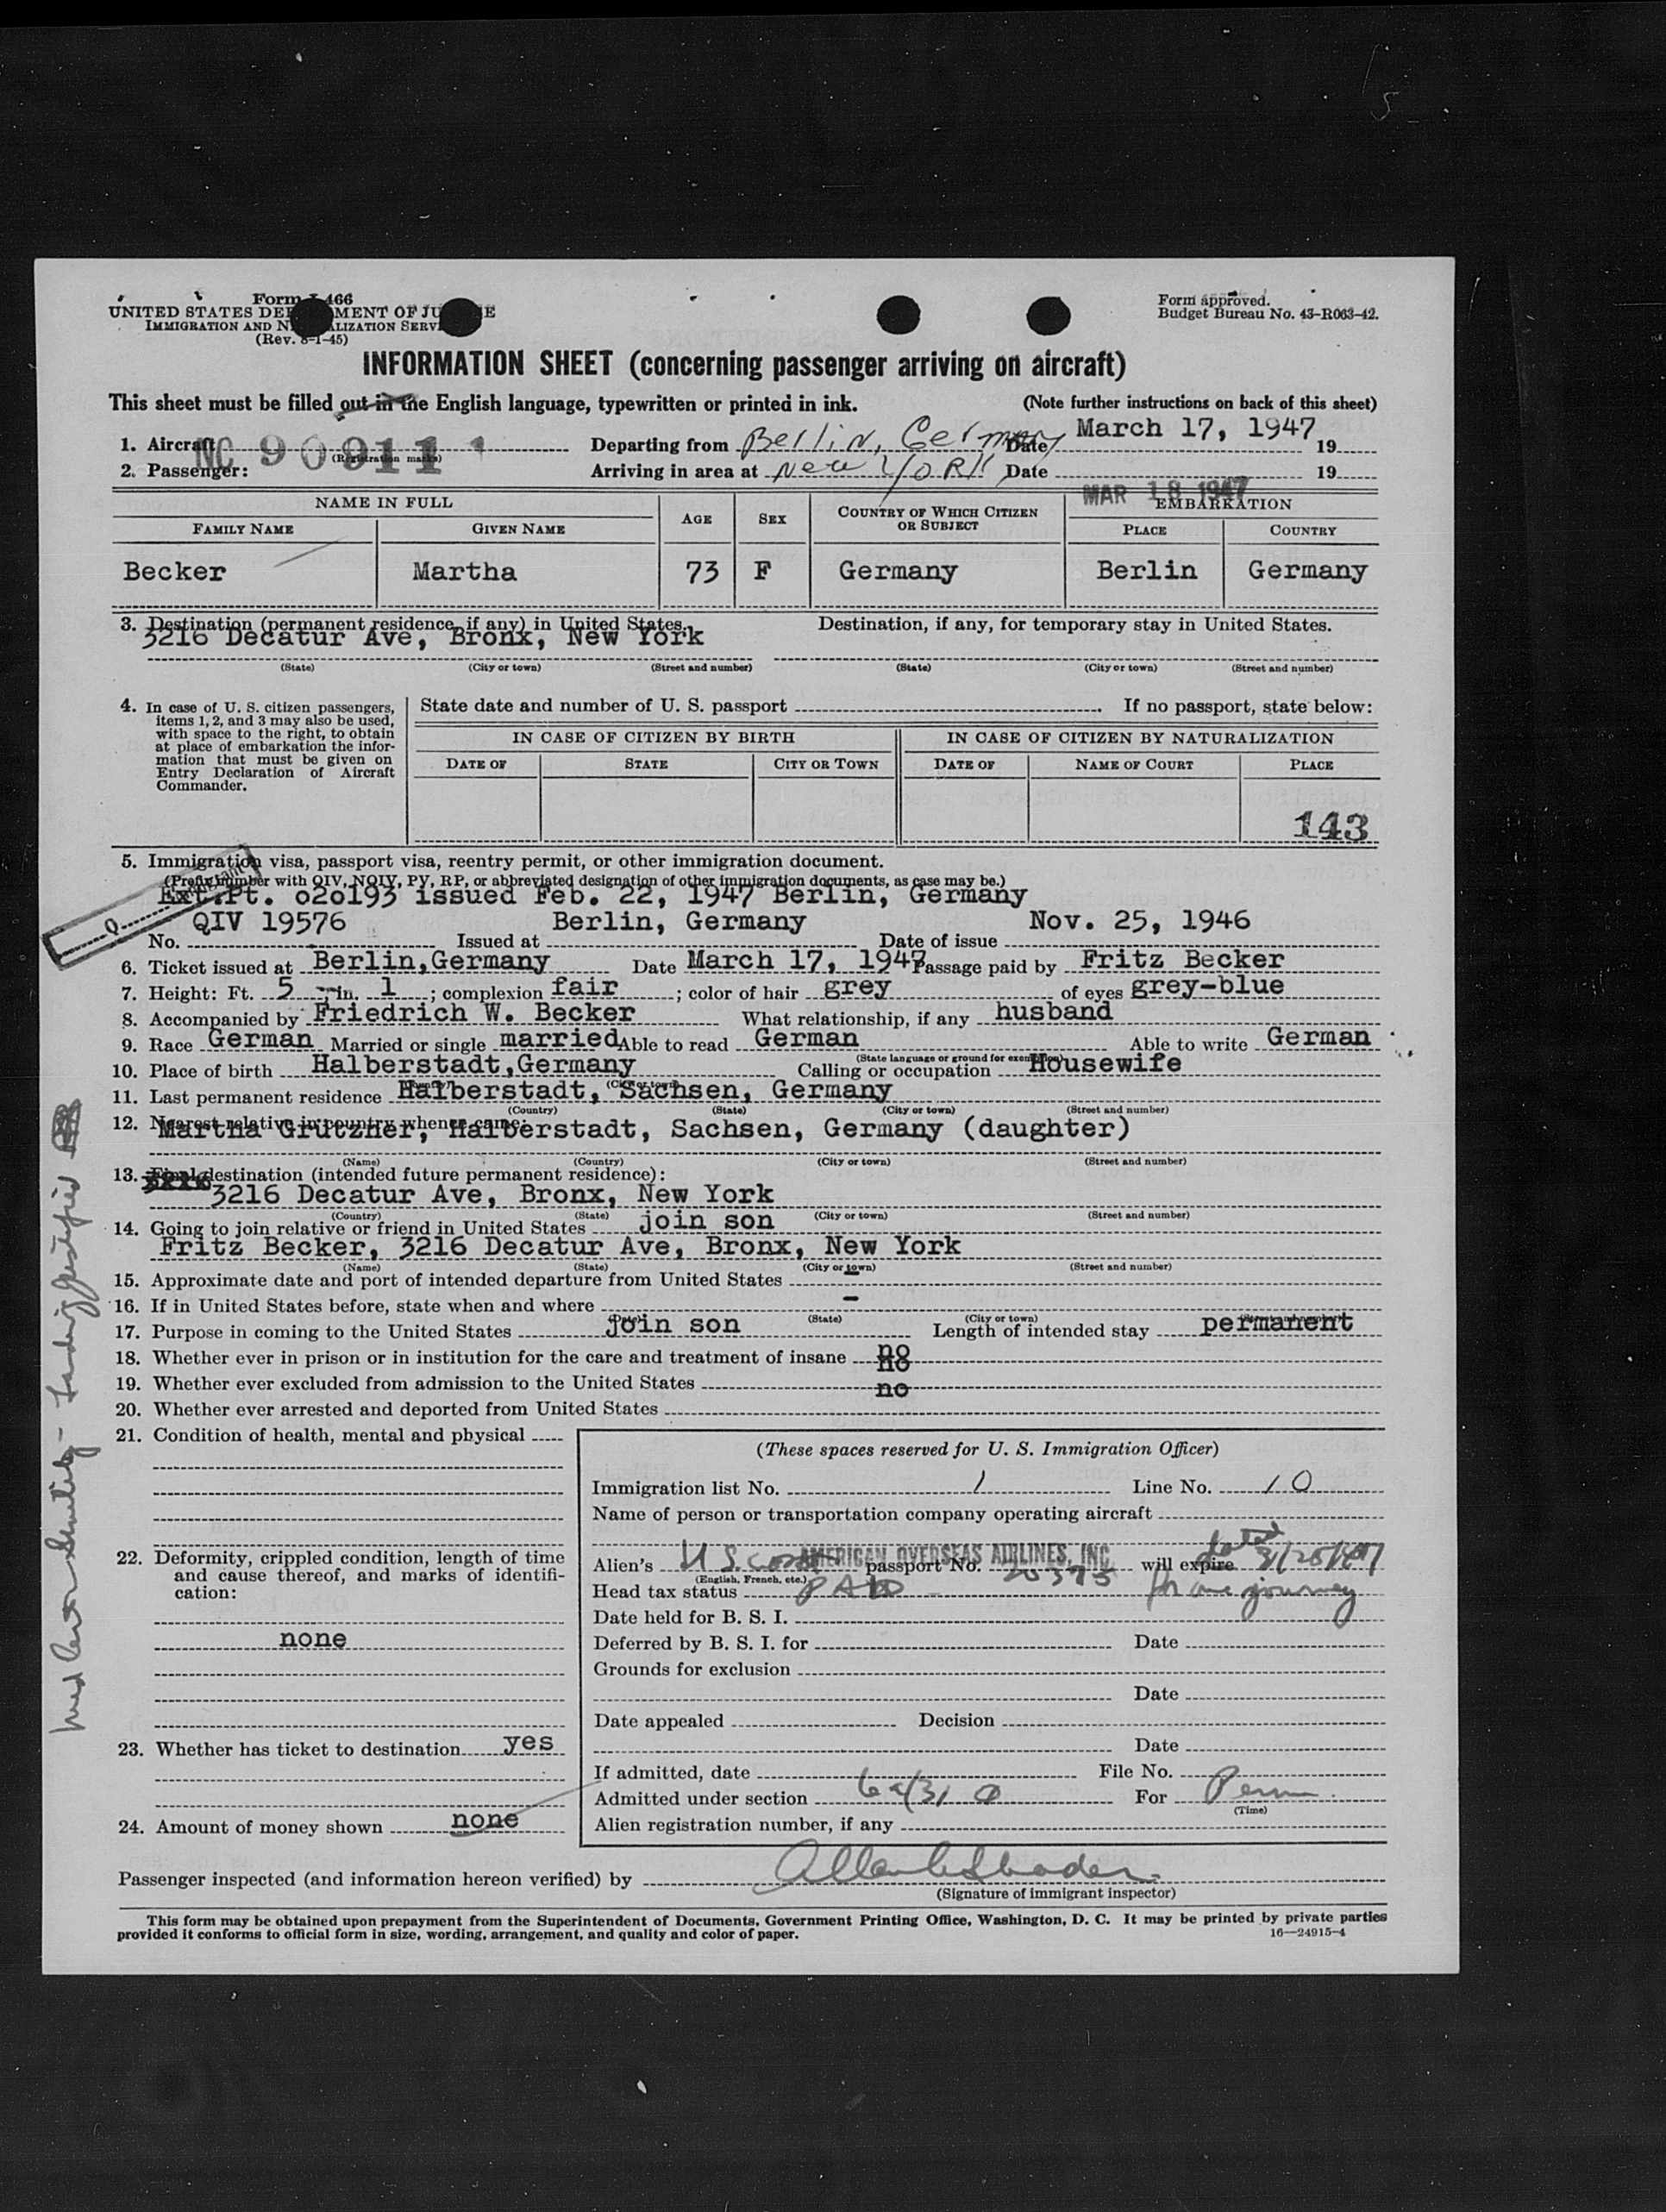 Form I-466
UNITED STATES DEPARTMENT OF JUSTICE
IMMIGRATION AND NATURALIZATION SERVICE
(Rev. 8-1-45)
Form approved.
Budget Bureau No. 43-R063-42.
INFORMATION SHEET (concerning passenger arriving on aircraft)
This sheet must be filled out in the English language, typewritten or printed in ink. (Note further instructions on back of this sheet)
1. Aircraft NC 90911 (Registration marks) Departing from Berlin, Germany Date March 17, 1947 19
2. Passenger: Arriving in area at New York Date MAR 18 1947 19
NAME IN FULL AGE SEX COUNTRY OF WHICH CITIZEN OR SUBJECT EMBARKATION
FAMILY NAME GIVEN NAME PLACE COUNTRY
Becker Martha 73 F Germany Berlin Germany
3. Destination (permanent residence, if any) in United States. Destination, if any, for temporary stay in United States.
3216 Decatur Ave, Bronx, New York
(State) (City or town) (Street and number) (State) (City or town) (Street and number)
4. In case of U. S. citizen passengers, items 1, 2, and 3 may also be used, with space to the right, to obtain at place of embarkation the information that must be given on Entry Declaration of Aircraft Commander.
State date and number of U. S. passport If no passport, state below:
IN CASE OF CITIZEN BY BIRTH IN CASE OF CITIZEN BY NATURALIZATION
DATE OF STATE CITY OR TOWN DATE OF NAME OF COURT PLACE
143
5. Immigration visa, passport visa, reentry permit, or other immigration document.
(Prefix number with QIV, NQIV, PV, RP, or abbreviated designation of other immigration documents, as case may be.)
Ext.Pt. o2o193 issued Feb. 22, 1947 Berlin, Germany
No. QIV 19576 Issued at Berlin, Germany Date of issue Nov. 25, 1946
6. Ticket issued at Berlin,Germany Date March 17, 1947 Passage paid by Fritz Becker
7. Height: Ft. 5 ; in. 1 ; complexion fair ; color of hair grey of eyes grey-blue
8. Accompanied by Friedrich W. Becker What relationship, if any husband
9. Race German Married or single married Able to read German Able to write German
(State language or ground for exemption)
10. Place of birth Halberstadt,Germany Calling or occupation Housewife
(Country) (City or town)
11. Last permanent residence Halberstadt, Sachsen, Germany
(Country) (State) (City or town) (Street and number)
12. Nearest relative in country whence came:
Martha Grutzner, Halberstadt, Sachsen, Germany (daughter)
(Name) (Country) (City or town) (Street and number)
13. Final destination (intended future permanent residence):
3216 Decatur Ave, Bronx, New York
(Country) (State) (City or town) (Street and number)
14. Going to join relative or friend in United States join son
Fritz Becker, 3216 Decatur Ave, Bronx, New York
(Name) (State) (City or town) (Street and number)
15. Approximate date and port of intended departure from United States -
16. If in United States before, state when and where -
(Date) (State) (City or town) (Street and number)
17. Purpose in coming to the United States join son Length of intended stay permanent
18. Whether ever in prison or in institution for the care and treatment of insane no
19. Whether ever excluded from admission to the United States no
20. Whether ever arrested and deported from United States no
21. Condition of health, mental and physical
22. Deformity, crippled condition, length of time and cause thereof, and marks of identification:
none
23. Whether has ticket to destination yes
24. Amount of money shown none
(These spaces reserved for U. S. Immigration Officer)
Immigration list No. 1 Line No. 10
Name of person or transportation company operating aircraft
AMERICAN OVERSEAS AIRLINES, INC.
Alien's U.S. passport No. 20375 will expire dated
(English, French, etc.)
Head tax status PAID for one journey
Date held for B. S. I.
Deferred by B. S. I. for Date
Grounds for exclusion
Date
Date appealed Decision
Date
If admitted, date File No.
Admitted under section For Perm.
(Time)
Alien registration number, if any
Passenger inspected (and information hereon verified) by
(Signature of immigrant inspector)
This form may be obtained upon prepayment from the Superintendent of Documents, Government Printing Office, Washington, D. C. It may be printed by private parties
provided it conforms to official form in size, wording, arrangement, and quality and color of paper. 16—24915-4